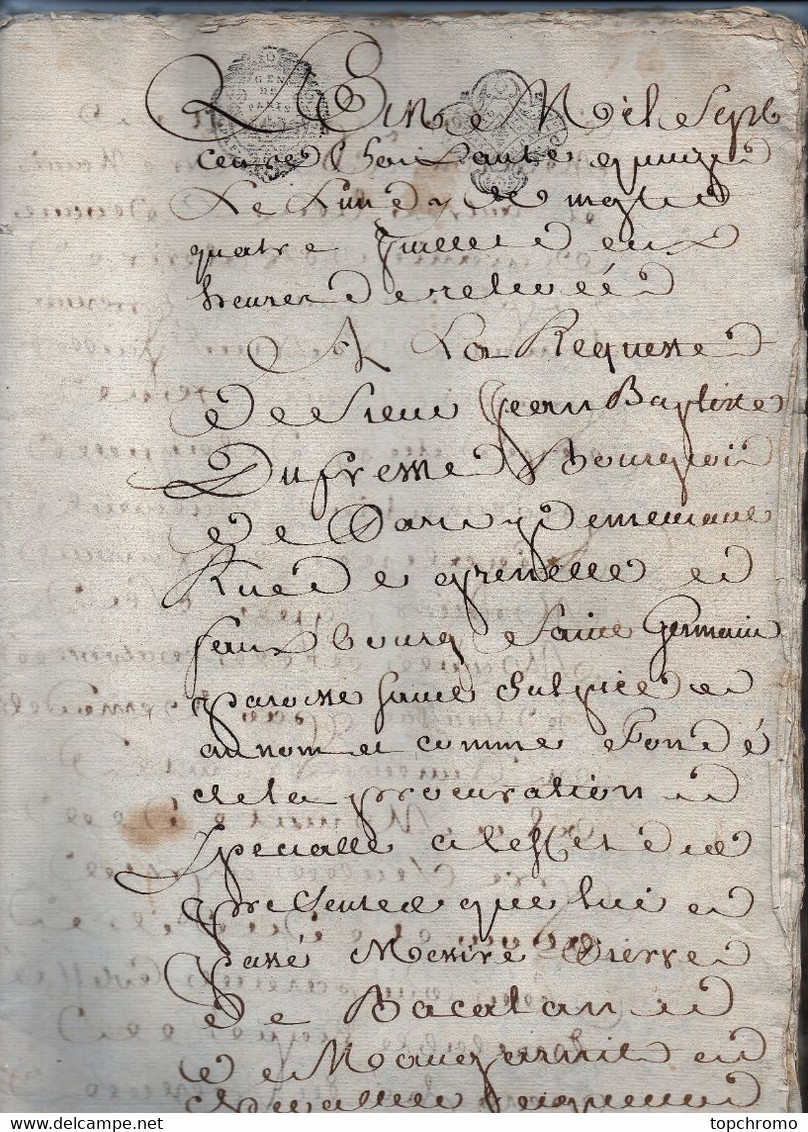 L'an Mil Sept
cent Soixante quinze
Le Lundy vingt
quatre Juillet deux
heures de relevée
A La Requeste
de Sieur Jean Baptiste
Dufresne Bourgeois
de Paris y demeurant
Rue de grenelle
fauxbourg Saint Germain
paroisse saint Sulpice
au nom et comme Fondé
de la procuration
Specialle a l'effet des
presentes que lui a
passé Messire Pierre
de Bacalan
de
chevallier seigneur
GEN
DE
PARIS
topchromo